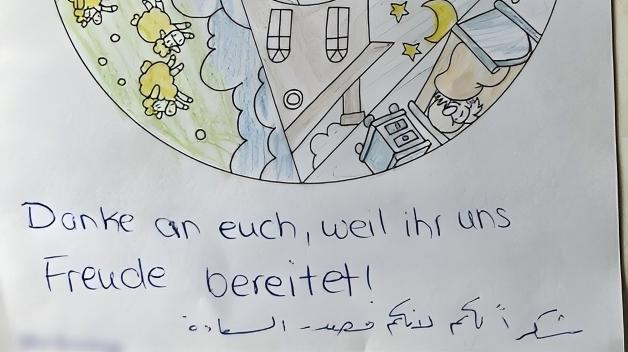 Danke an euch, weil ihr uns
Freude bereitet!
شكراً لكم لانكم السعادة